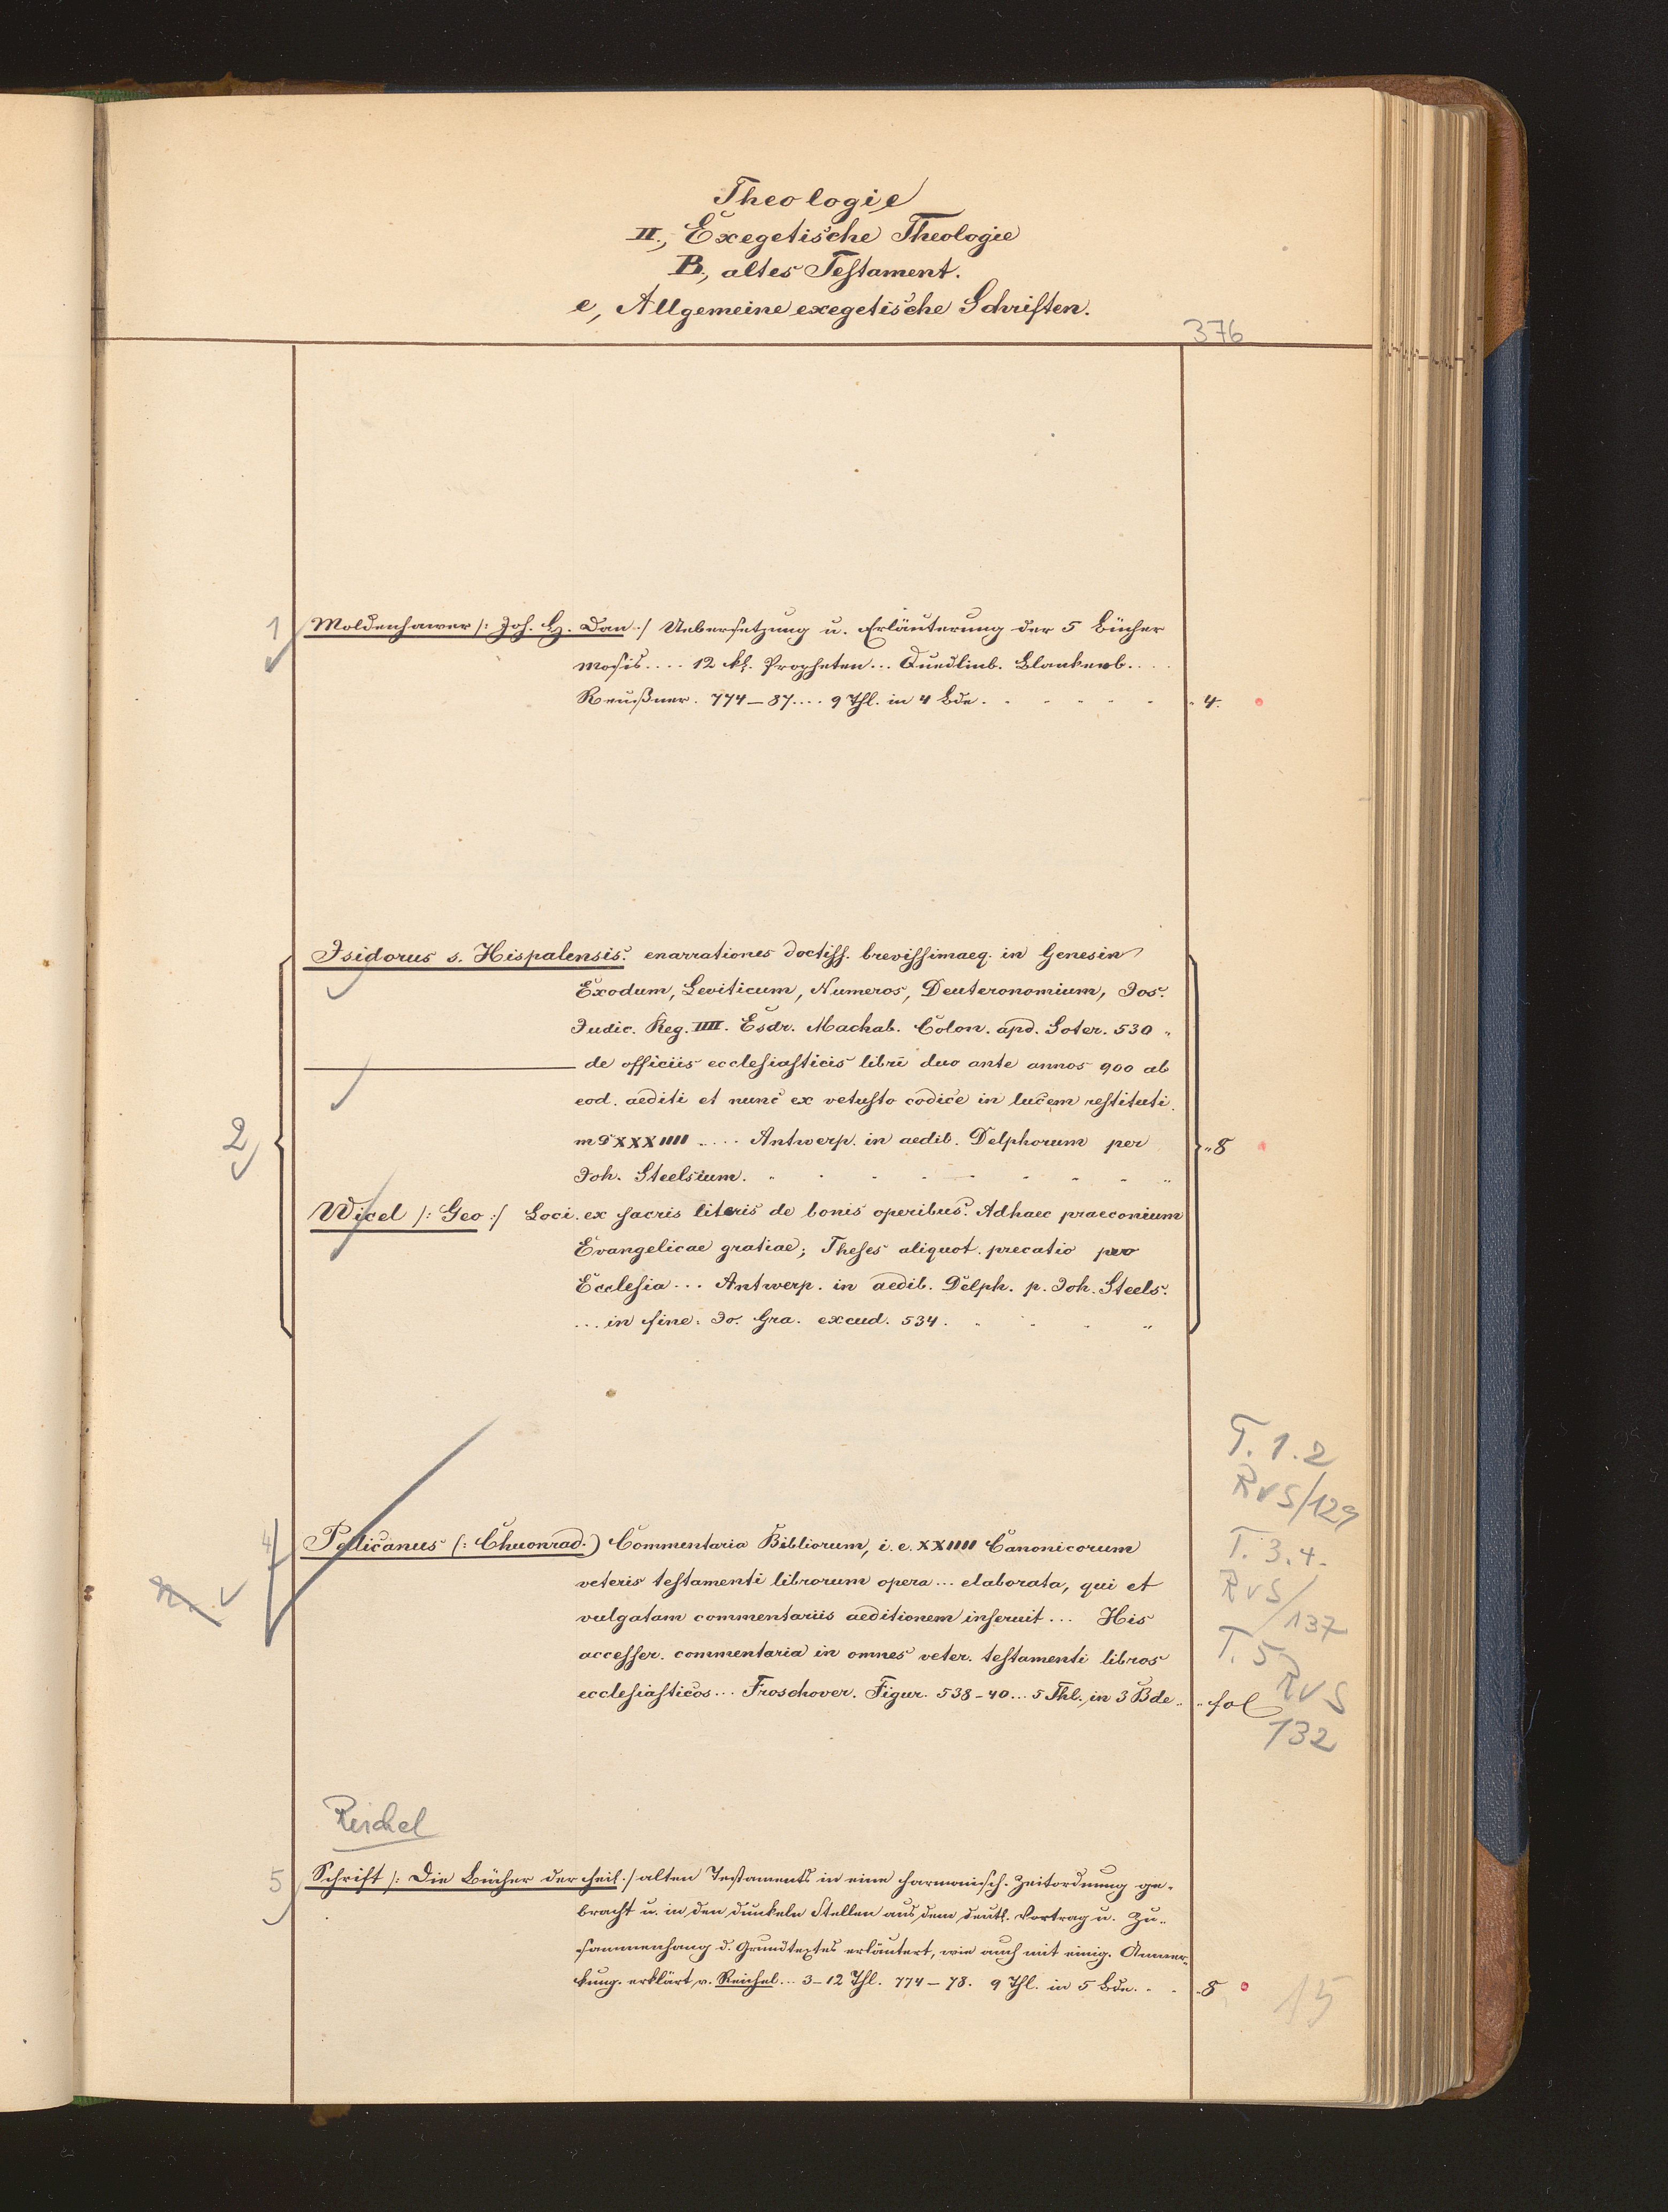 Theologie
II., Exegetische Theologie
B., altes Testament.
e, Allgemeine exegetische Schriften.
376
1 Moldenhawer /: Joh. H. Dan :/ Uebersetzung u. Erläuterung der 5 Bücher
Mosis.... 12 kl. Propheten... Quedlinb. Blankenb....
Reußner. 774–87.... 9 Thl. in 4 Bde. 4.
Isidorus s. Hispalensis. enarrationes doctiss. brevissimaeq. in Genesin
Exodum, Leviticum, Numeros, Deuteronomium, Jos.
Judic. Reg. IIII. Esdr. Machab. Colon. apd. Soter. 530
— de officiis ecclesiasticis libri duo ante annos 900 ab
eod. aediti et nunc ex vetusto codice in lucem restituti.
2 XXXIIII .... Antwerp. in aedib. Delphorum per 8
Joh. Steelsium.
Wicel /: Geo :/ Loci ex sacris literis de bonis operibus. Adhaec praeconium
Evangelicae gratiae; Theses aliquot. precatio pro
Ecclesia... Antwerp. in aedib. Delph. p. Joh. Steels.
... in fine: Jo. Gra. excud. 534.
T. 1.2
RvS/129
4 Pelicanus (: Chuonrad.) Commentaria Bibliorum, i. e. XXIIII Canonicorum
T. 3.4.
veteris testamenti librorum opera... elaborata, qui et
RvS/
vulgatam commentariis aeditionem inseruit... His
137
accesser. commentaria in omnes veter. testamenti libros
T. 5
RvS
ecclesiasticos... Froschover. Figur. 538–40... 5 Thl. in 3 Bde. fol
132
Reichel
5 Schrift /: Die Bücher der heil. / alten Testaments in eine harmonisch. Zeitordnung ge-
bracht u. in den dunkeln Stellen aus dem deutl. Vortrag u. Zu-
sammenhang d. Grundtextes erläutert, wie auch mit einig. Anmer-
kung. erklärt v. Reichel... 3–12 Thl. 774–78. 9 Thl. in 5 Bde. 8
15